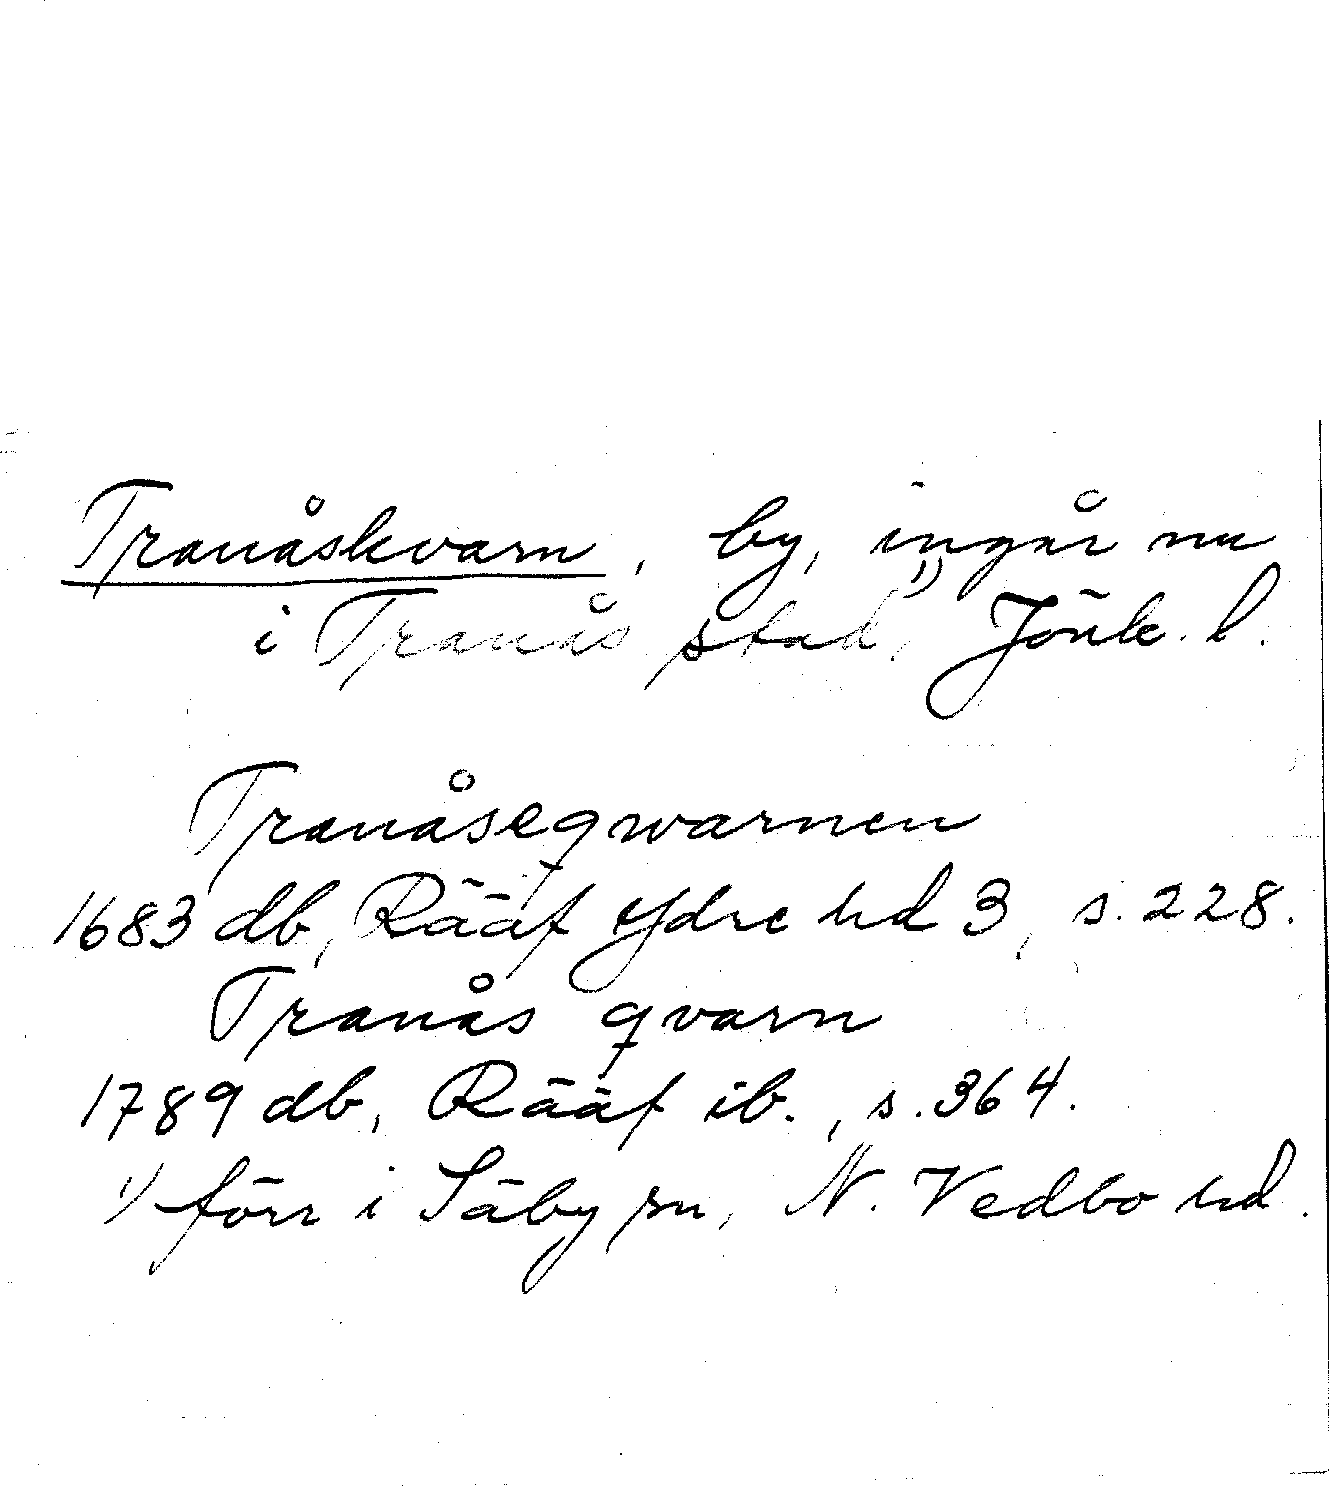 Tranåskvarn, by, ingår nu
i Tranås stad,¹⁾ Jönk. l.
Tranåseqwarnen
1683 db, Rääf Ydre hd 3, s. 228.
Tranås qvarn
1789 db, Rääf ib., s. 364.
¹⁾ förr i Säby sn, N. Vedbo hd.